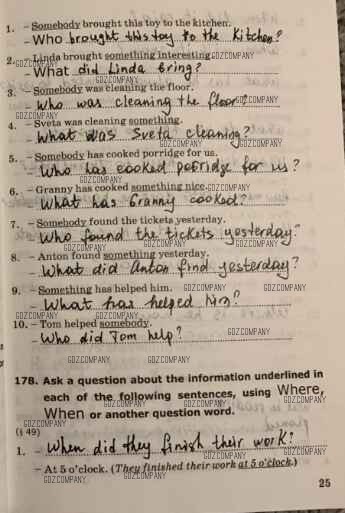 1. – Somebody brought this toy to the kitchen.
– Who brought this toy to the kitchen?
2. – Linda brought something interesting. GDZCOMPANY
GDZCOMPANY
– What did Linda bring?
GDZCOMPANY
3. – Somebody was cleaning the floor.
– Who was cleaning the floor? GDZCOMPANY
GDZCOMPANY
4. – Sveta was cleaning something.
– What was Sveta cleaning?
GDZCOMPANY GDZCOMPANY
5. – Somebody has cooked porridge for us.
GDZCOMPANY GDZCOMPANY
– Who has cooked porridge for us?
6. – Granny has cooked something nice. GDZCOMPANY
– What has Granny cooked?
GDZCOMPANY
7. – Somebody found the tickets yesterday.
– Who found the tickets yesterday?
GDZCOMPANY GDZCOMPANY GDZCOMPANY
8. – Anton found something yesterday.
– What did Anton find yesterday?
GDZCOMPANY
9. – Something has helped him.
GDZCOMPANY GDZCOMPANY GDZCOMPANY
– What has helped him?
GDZCOMPANY GDZCOMPANY
10. – Tom helped somebody.
GDZCOMPANY
– Who did Tom help?
GDZCOMPANY GDZCOMPANY
178. Ask a question about the information underlined in
each of the following sentences, using Where,
GDZCOMPANY
When or another question word.
GDZCOMPANY
(§ 49)
1. – When did they finish their work?
GDZCOMPANY GDZCOMPANY GDZCOMPANY
– At 5 o'clock. (They finished their work at 5 o'clock.)
GDZCOMPANY GDZCOMPANY
25